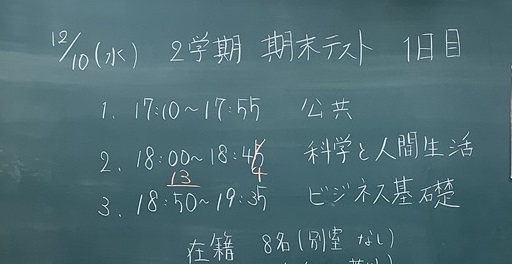 12/10(水) 2学期 期末テスト 1日目
1. 17:10~17:55 公共
2. 18:00~18:45 科学と人間生活
13 4
3. 18:50~19:35 ビジネス基礎
在籍 8名(別室 なし)